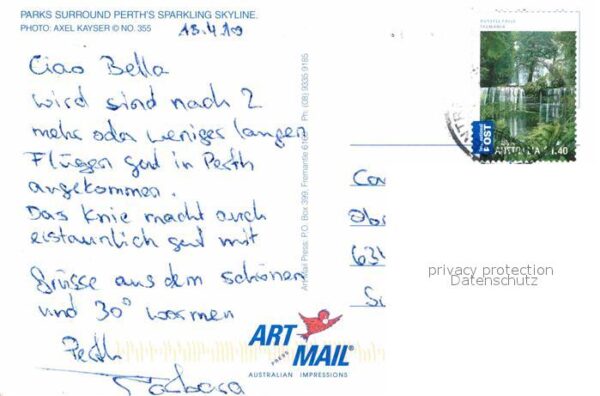 PARKS SURROUND PERTH'S SPARKLING SKYLINE.
PHOTO: AXEL KAYSER © NO. 355
18.4.10
Ciao Bella
wird sind nach 2
mehr oder weniger langen
Flügen gut in Perth
angekommen.
Das Knie macht auch
erstaunlich gut mit
Grüsse aus dem schönen
und 30° warmen
Perth
Barbara
ART
PRESS
MAIL®
AUSTRALIAN IMPRESSIONS
ArtMail Press: P.O. Box 399, Fremantle 6160 Ph: (08) 9335 9185
RUSSELL FALLS
TASMANIA
International
POST
AUSTRALIA 1.40
privacy protection
Datenschutz